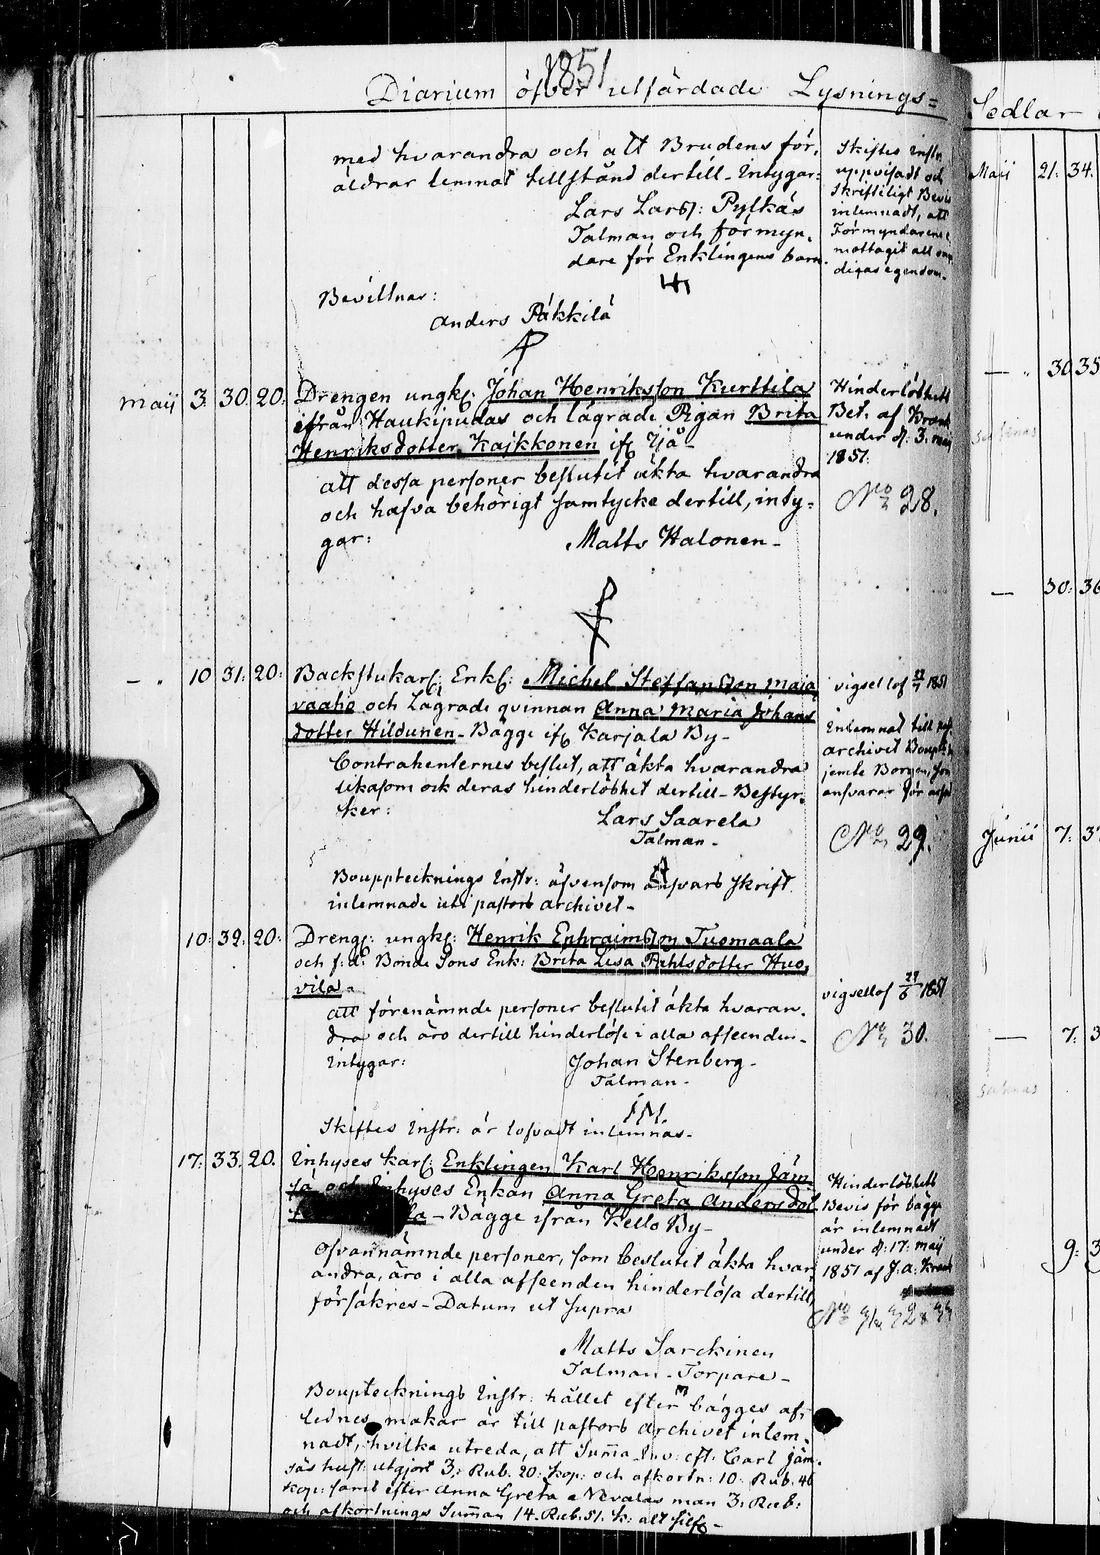 1851
Diarium öfver utfärdade Lysnings=
med hvarandra och att Brudens för,
äldrar lemnat tillstånd dertill - Intygar:
Lars Larss: Pylkäs
Talman och förmyn,
dare för Enklingens barn.
Bevillnas:
Anders Päkkilä
Skiftes Instr
uppvisadt och
Skriftiligt Bevis
inlemnadt, att
Förmyndarene
mottagit all om
digas egendom.
maij 3. 30. 20. Drengen ungk: Johan Henriksson Kurttila
ifrån Haukipudas och lägrade Pigan Brita
Henriksdotter Kaikkonen if. Ijå
att dessa personer beslutit äkta hvarandra
och hafva behörigt samtycke dertill, inty=
gar:
Matts Halonen -
Hinderlöshets
Bet. af Krank
under d: 3. maij
1851.
No 28.
- 10 31. 20. Backstukarl: Enkl: Michel Steffansson Maja
vaaho och Lägrade qvinnan Anna Maria Johans
dotter Hildunen - Bägge if. Karjala By -
Contrahenternes beslut, att äkta hvarandra
likasom ock deras hinderlöshet dertill - Bestyr,
ker:
Lars Saarela
Talman -
Bouppteknings Instr: äfvensom ansvars skrift
inlemnade uti pastors archivet -
vigsellof 1851
Inlemnat till past
archivet
jemte Borgen, som
ansvarar för
No 29.
10: 32. 20: Drengs: ungk: Henrik Ephraimsson Tuomaala
och f: d: Bonde Sons Enk: Brita Lisa Pahlsdotter Huo,
vila -
att förenämnde personer beslutit äkta hvaran,
dra och äro dertill hinderlöse i alla afseenden -
Intygar:
Johan Stenberg -
Talman -
I M.
Skiftes Instr: är lofvadt inlemnas -
vigsellof 29/6 1851
No 30.
17: 33. 20. Inhyses karl: Enklingen Karl Henriksson Jäm
sä och Inhyses Enkan Anna Greta Andersdot
- Bägge ifrån Kello By -
Ofvannämnde personer, som beslutet äkta hvar
andra, äro i alla afseenden hinderlösa dertill,
försäkres - Datum ut supra
Matts Sarckinen
Talman - Torpare -
M
Boupptecknings Instr: hållet efter bägges af,
lednes makar är till pastors archivet inlem,
nadt, hvilka utreda, att Summa Inv: eft: Carl Jäm,
säs hust: utgjort 3: Rub. 20: kop: och afkortn: 10: Rub. 46
kop: samt efter Anna Greta a Nevalas man 3: Rub:
och afkortnings Summan 14. Rub. 51. k: alt silf -
Hinderlöshets
Bevis för bägge
är inlemnadt
under d: 17: maij
1851 af J. A. Krank
Sedlar
Maij 21. 34.
30 35
30: 36
Junii 7: 37
7: 3
9: 3